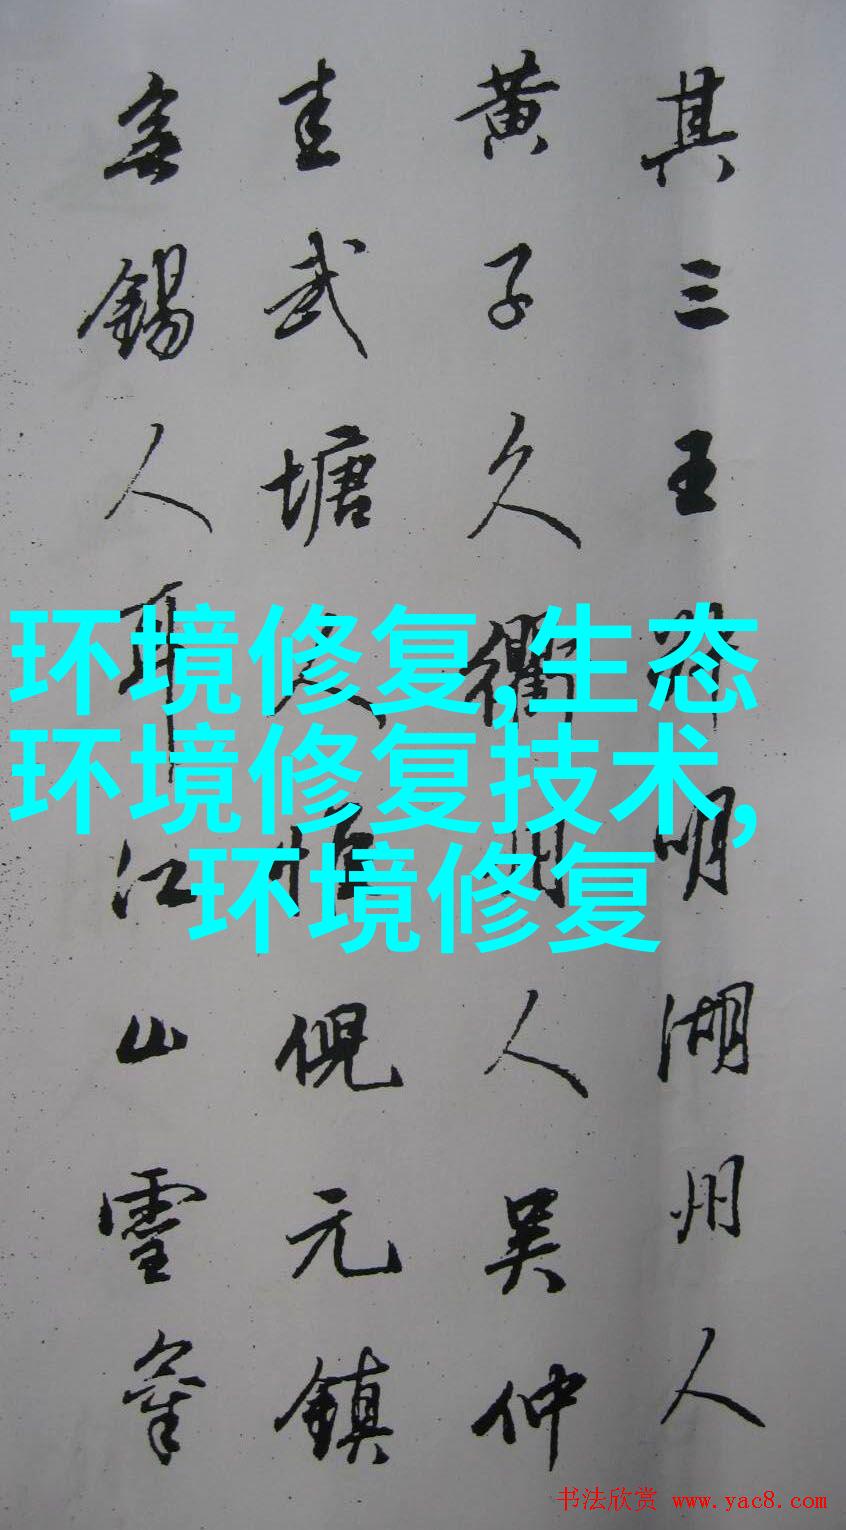 其三王叔明湖州人
黄子久衢州人吴仲
圭武塘人惟倪元鎮
無錫人耳江山靈
环境修复,生态
环境修复技术,
环境修复
书法欣赏 www.yac8.com